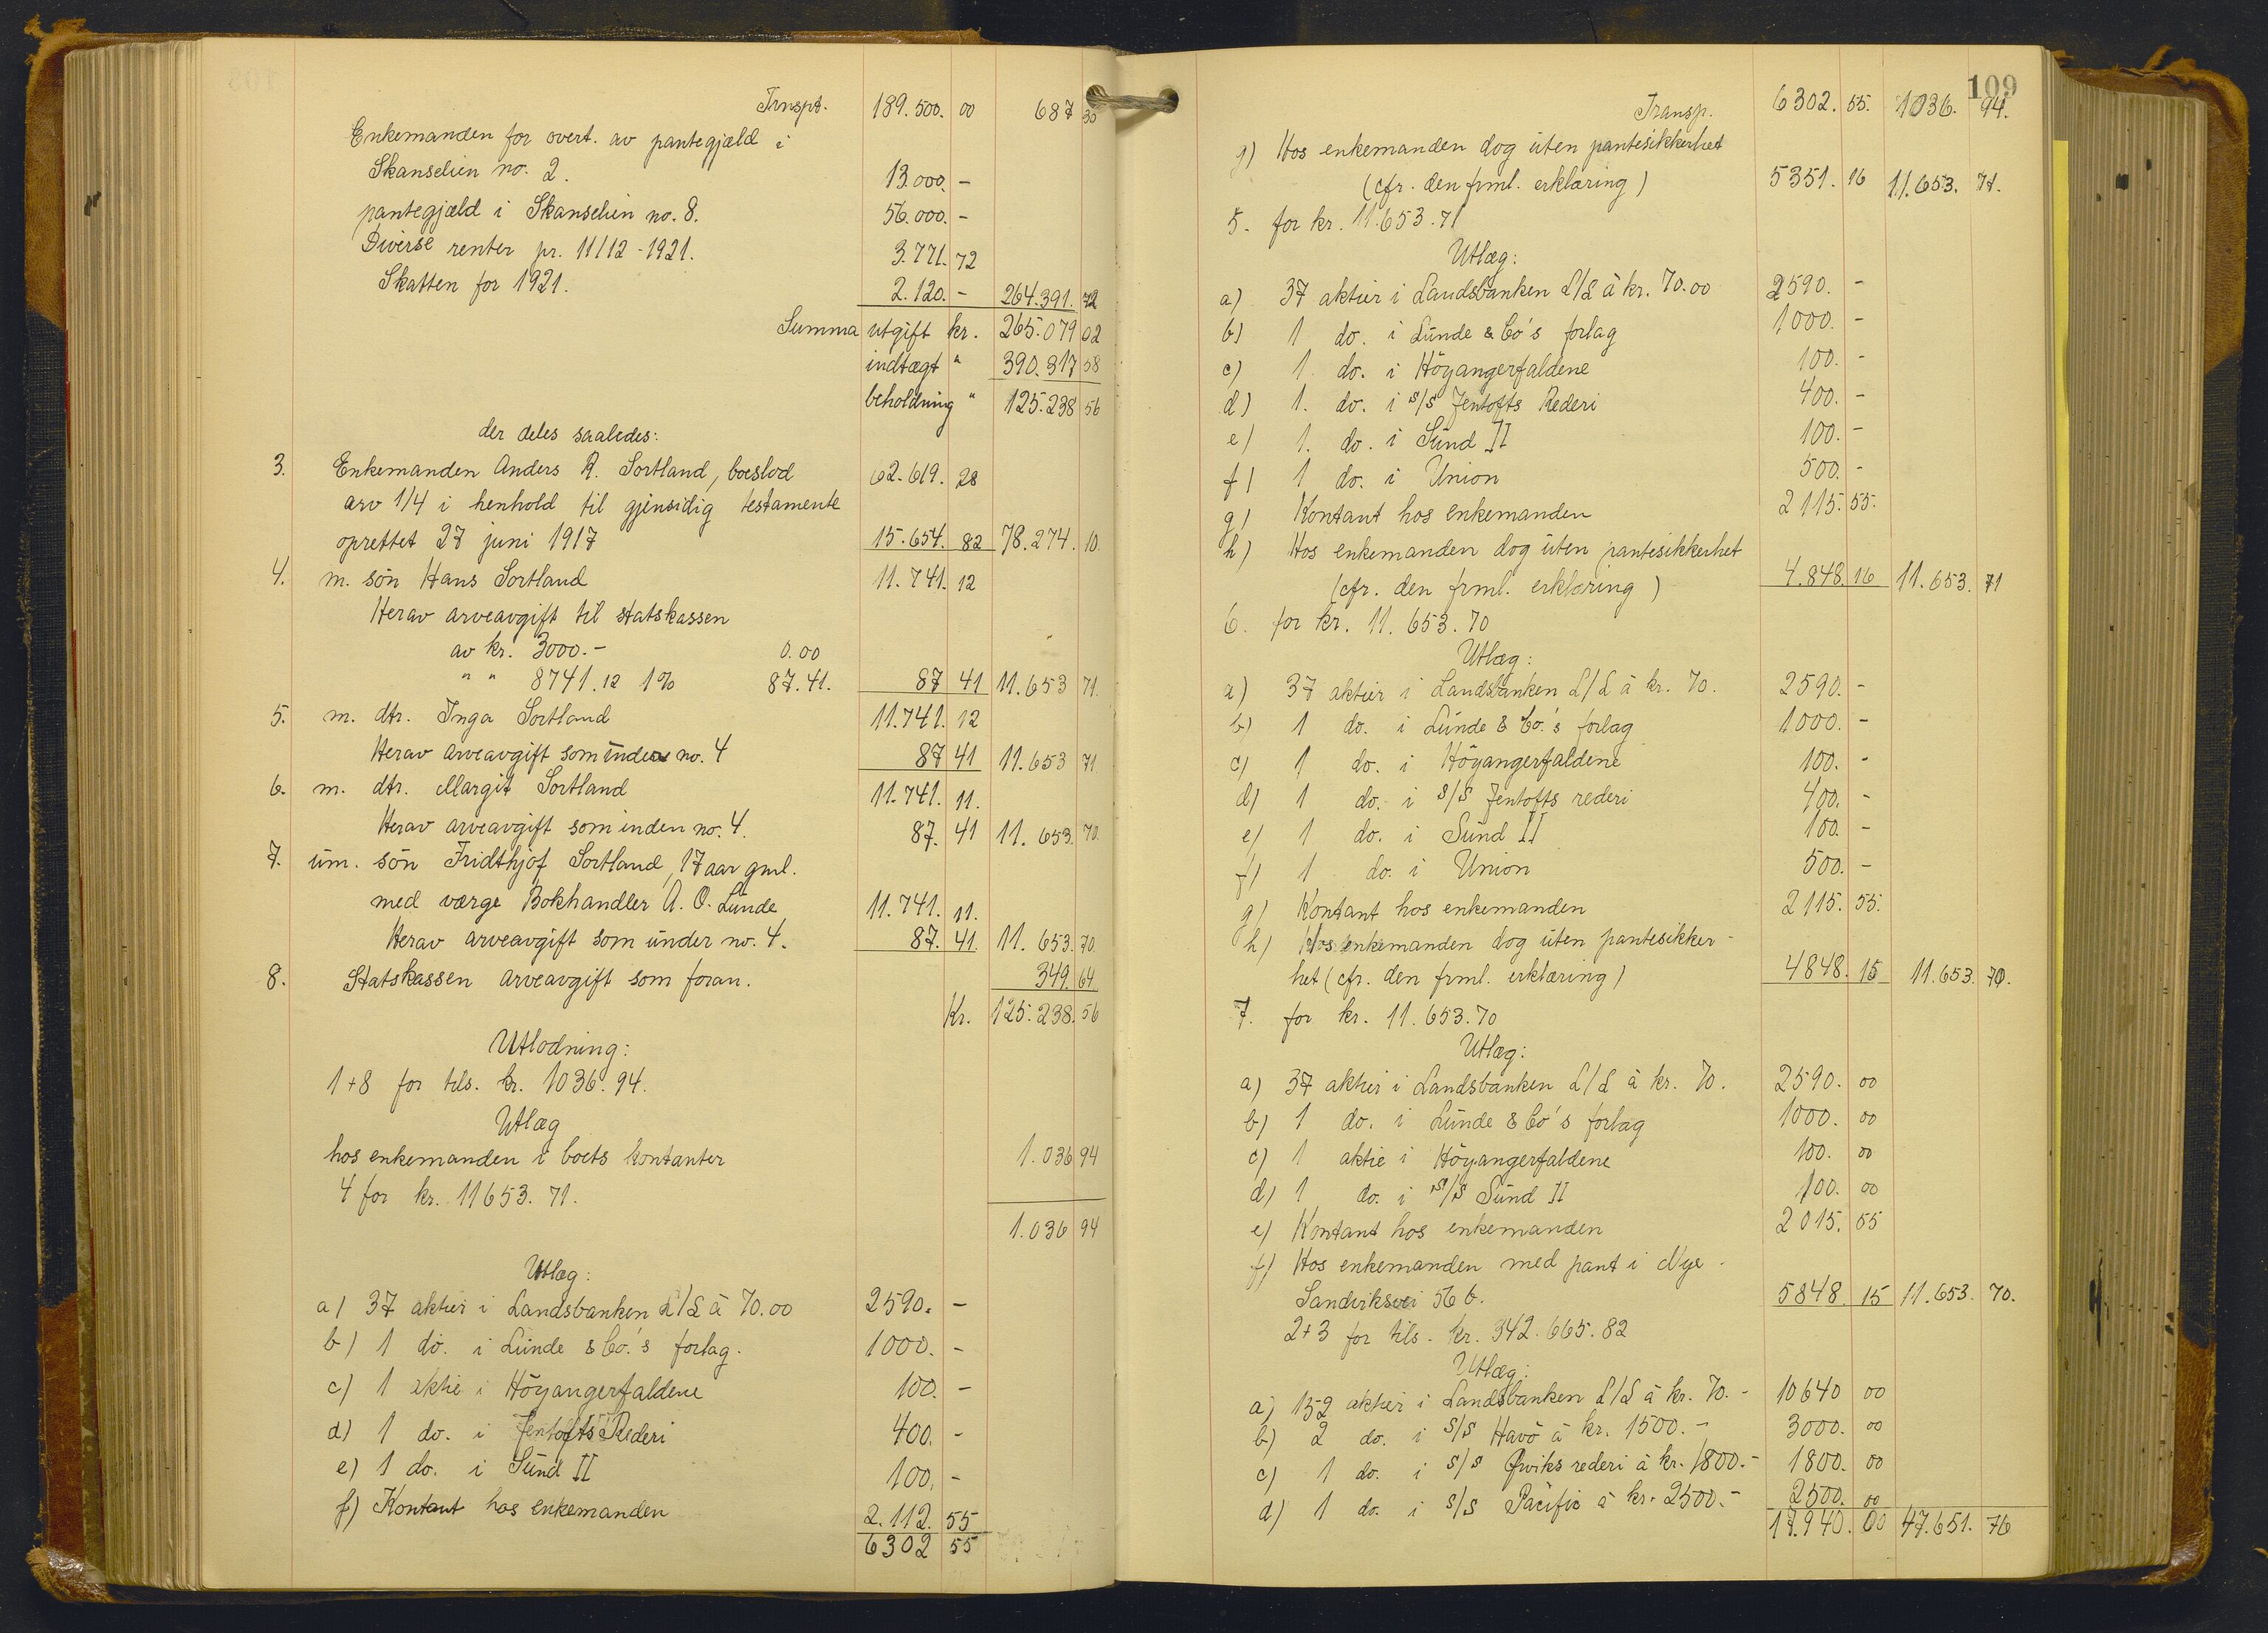 Trnspt. 189.500. 00 687 30
Enkemanden for overt. av pantegjæld i
Skanselien no. 2. 13.000. -
pantegjæld i Skanselien no. 8. 56.000. -
Diverse renter pr. 11/12-1921. 3.771. 72
Skatten for 1921. 2.120. - 264.391. 72
Summa utgift kr. 265.079 02
indtægt " 390.317 58
beholdning " 125.238 56
der deles saaledes:
3. Enkemanden Anders R. Sortland, boeslod 62.619. 28
arv 1/4 i henhold til gjensidig testamente
oprettet 27 juni 1917 15.654. 82 78.274. 10
4. m. sön Hans Sortland 11.741. 12
Herav arveavgift til statskassen
av kr. 3000.- 0.00
" " 8741.12 1% 87.41. 87 41 11.653 71.
5. m. dtr. Inga Sortland 11.741. 12
Herav arveavgift som ünder no. 4 87 41 11.653 71
6. m. dtr. Margit Sortland 11.741. 11.
Herav arveavgift som inden no. 4. 87. 41 11.653. 70.
7. üm. sön Fridthjof Sortland, 17 aar gml.
med værge Bokhandler A. O. Lünde 11.741. 11.
Herav arveavgift som ünder no. 4. 87. 41. 11.653. 70
8. Statskassen arveavgift som foran. 349. 64
Kr. 125.238. 56
Utlodning:
1+8 for tils. kr. 1036.94.
Utlæg
hos enkemanden i boets kontanter 1.036 94
4 for kr. 11653.71.
1.036 94
Utlæg:
a) 37 aktier i Landsbanken L/L à 70.00 2590. -
b) 1 do. i Lünde & Co.'s forlag. 1000. -
c) 1 aktie i Höyangerfaldene 100. -
d) 1 do. i Jentofts Rederi 400. -
e) 1 do. i Sünd II 100. -
f) Kontant hos enkemanden 2.112. 55
6302 55
109
Transp. 6302. 55. 1036. 94.
g) Hos enkemanden dog üten pantesikkerhet
(cfr. den frml. erklæring) 5351. 16 11.653. 71.
5. for kr. 11.653.71
Utlæg:
a) 37 aktier i Landsbanken L/L à kr. 70.00 2590. -
b) 1 do. i Lünde & Co's forlag 1000. -
c) 1 do. i Höyangerfaldene 100. -
d) 1. do. i S/S Jentofts Rederi 400. -
e) 1. do. i Sünd II 100. -
f) 1 do. i Union 500. -
g) Kontant hos enkemanden 2115. 55.
h) Hos enkemanden dog üten pantesikkerhet
(cfr. den frml. erklæring) 4.848 16 11.653. 71
6. for kr. 11.653.70
Utlæg:
a) 37 aktier i Landsbanken L/L à kr. 70. 2590. -
b) 1 do. i Lünde & Co.'s forlag 1000. -
c) 1 do. i Höyangerfaldene 100. -
d) 1 do. i S/S Jentofts rederi 400. -
e) 1 do. i Sünd II 100. -
f) 1 do. i Union 500. -
g) Kontant hos enkemanden 2115. 55.
h) Hos enkemanden dog üten pantesikker-
het (cfr. den frml. erklæring) 4848. 15 11.653. 70.
7. for kr. 11.653.70
Utlæg:
a) 37 aktier i Landsbanken L/L à kr. 70. 2590. 00
b) 1 do. i Lünde & Co's forlag 1000. 00
c) 1 aktie i Höyangerfaldene 100. 00
d) 1 do. i S/S Sünd II 100. 00
e) Kontant hos enkemanden 2015. 55
f) Hos enkemanden med pant i Nye-
Sandviksvei 56 b. 5848. 15 11.653. 70.
2+3 for tils. kr. 342.665.82
Utlæg:
a) 152 aktier i Landsbanken L/L à kr. 70.- 10640 00
b) 2 do. i S/S Havö à kr. 1500.- 3000. 00
c) 1 do. i S/S Qviks rederi à kr. 1800.- 1800. 00
d) 1 do. i S/S Pacific à kr. 2500.- 2500. 00
17.940. 00 47.651. 76